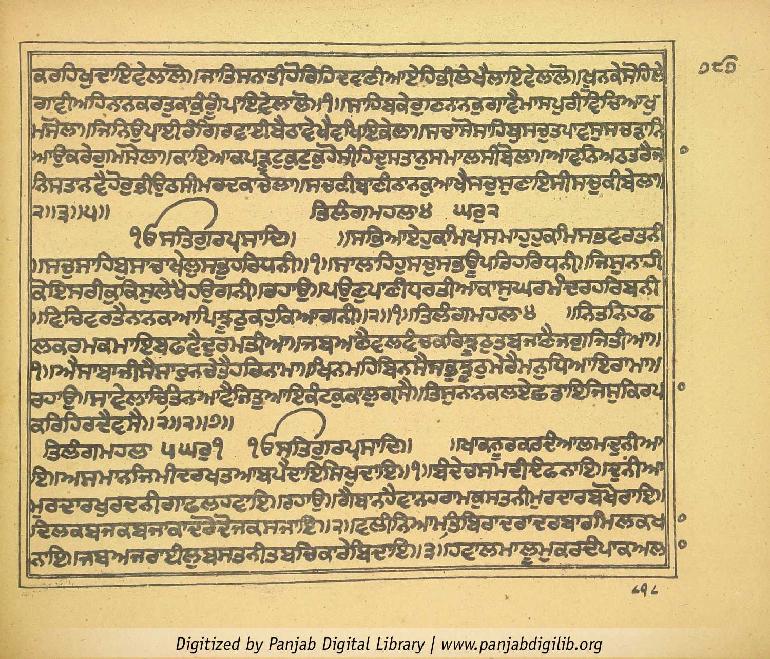 ਕਰਹਿਖੁਦਾਇਵੇਲਾਲੋ॥ਜਾਤਿਸਨਾਤੀਹੋਰਿਹਿਦਵਾਣੀਆਏਹਿਭੀਲੇਖੈਲਾਇਵੇਲਾਲੋ॥ਖੂਨਕੇਸੋਹਿਲੇ ੭੨੨
ਗਾਵੀਅਹਿਨਾਨਕਰਤੁਕਾਕੁੰਗੂਪਾਇਵੇਲਾਲੋ॥੧॥ਸਾਹਿਬਕੇਗੁਣਨਾਨਕੁਗਾਵੈਮਾਸਪੁਰੀਵਿਚਿਆਖੁ
ਮਸੋਲਾ॥ਜਿਨਿਉਪਾਈਰੰਗਿਰਵਾਈਬੈਠਾਵੇਖੈਵਖਿਇਕੇਲਾ॥ਸਚਾਸੋਸਾਹਿਬੁਸਚੁਤਪਾਵਸੁਸਚੜਾਨਿ
ਆਉਕਰੇਗੁਮਸੋਲਾ॥ਕਾਇਆਕਪੜੁਟੁਕੁਟੁਕੁਹੋਸੀਹਿਦੁਸਤਾਨੁਸਮਾਲਸੀਬੋਲਾ॥ਆਵਨਿਅਠਤਰੈਜਾ
ਨਿਸਤਾਨਵੈਹੋਰੁਭੀਉਠਸੀਮਰਦਕਾਚੇਲਾ॥ਸਚਕੀਬਾਣੀਨਾਨਕੁਆਖੈਸਚੁਸੁਣਾਇਸੀਸਚਕੀਬੇਲਾ॥
੨॥੩॥੫॥ ਤਿਲੰਗਮਹਲਾ੪ ਘਰੁ੨
੧ੳਸਤਿਗੁਰਪ੍ਰਸਾਦਿ॥ ॥ਸਭਿਆਏਹੁਕਮਿਖਸਮਾਹੁਹੁਕਮਿਸਭਵਰਤਨੀ
॥ਸਚੁਸਾਹਿਬੁਸਾਚਾਖੇਲੁਸਭੁਹਰਿਧਨੀ॥੧॥ਸਾਲਾਹਿਹੁਸਚੁਸਭਊਪਰਿਹਰਿਧਨੀ॥ਜਿਸੁਨਾਹੀ
ਕੋਇਸਰੀਕੁਕਿਸੁਲੇਖੈਹਉਗਨੀ॥ਰਹਾਉ॥ਪਉਣਪਾਣੀਧਰਤੀਆਕਾਸੁਘਰਮੰਦਰਹਰਿਬਨੀ
॥ਵਿਚਿਵਰਤੈਨਾਨਕਆਪਿਝੂਠੁਕਹੁਕਿਆਗਨੀ॥੨॥੧॥ਤਿਲੰਗਮਹਲਾ੪ ॥ਨਿਤਨਿਹਫ
ਲਕਰਮਕਮਾਇਬਫਾਵੈਦੁਰਮਤੀਆ॥ਜਬਆਣੈਵਲਵੰਚਕਰਿਝੂਠੁਤਬਜਾਣੈਜਗੁਜਿਤੀਆ॥
੧॥ਐਸਾਬਾਜੀਸੈਸਾਰੁਨਚੇਤੈਹਰਿਨਾਮਾ॥ਖਿਨਮਹਿਬਿਨਸੈਸਭੁਝੂਠੁਮੇਰੇਮਨਧਿਆਇਰਾਮਾ॥
ਰਹਾਉ॥ਸਾਵੇਲਾਚਿਤਿਨਆਵੈਜਿਤੁਆਇਕੰਟਕੁਕਾਲੁਗ੍ਰਸੈ॥ਤਿਸੁਨਾਨਕਲਏਛਡਾਇਜਿਸੁਕਿਰਪਾ
ਕਰਿਹਿਰਦੈਵਸੈ॥੨॥੨॥੭॥
ਤਿਲੰਗਮਹਲਾ ੫ਘਰੁ੧ ੧ੳਸਤਿਗੁਰਪ੍ਰਸਾਦਿ॥ ॥ਖਾਕਨੂਰਕਰਦੰਆਲਮਦੁਨੀਆ
ਇ॥ਅਸਮਾਨਜਿਮੀਦਰਖਤਆਬਪੈਦਾਇਸਿਖੁਦਾਇ॥੧॥ਬੰਦੇਚਸਮਦੀਦੰਫਨਾਇ॥ਦੁਨੀਆ
ਮੁਰਦਾਰਖੁਰਦਨੀਗਾਫਲਹਵਾਇ॥ਰਹਾਉ॥ਗੈਬਾਨਹੈਵਾਨਹਰਾਮਕੁਸਤਨੀਮੁਰਦਾਰਬਖੋਰਾਇ॥
ਦਿਲਕਬਜਕਬਜਾਕਾਦਰੋਦੋਜਕਸਜਾਇ॥੨॥ਵਲੀਨਿਆਮਤਿਬਿਰਾਦਰਾਦਰਬਾਰਮਿਲਕਖਾ
ਨਾਇ॥ਜਬਅਜਰਾਈਲੁਬਸਤਨੀਤਬਚਿਕਾਰੇਬਿਦਾਇ॥੩॥ਹਵਾਲਮਾਲੂਮੁਕਰਦੰਪਾਕਅਲਾ
Digitized by Panjab Digital Library | www.panjabdigilib.org